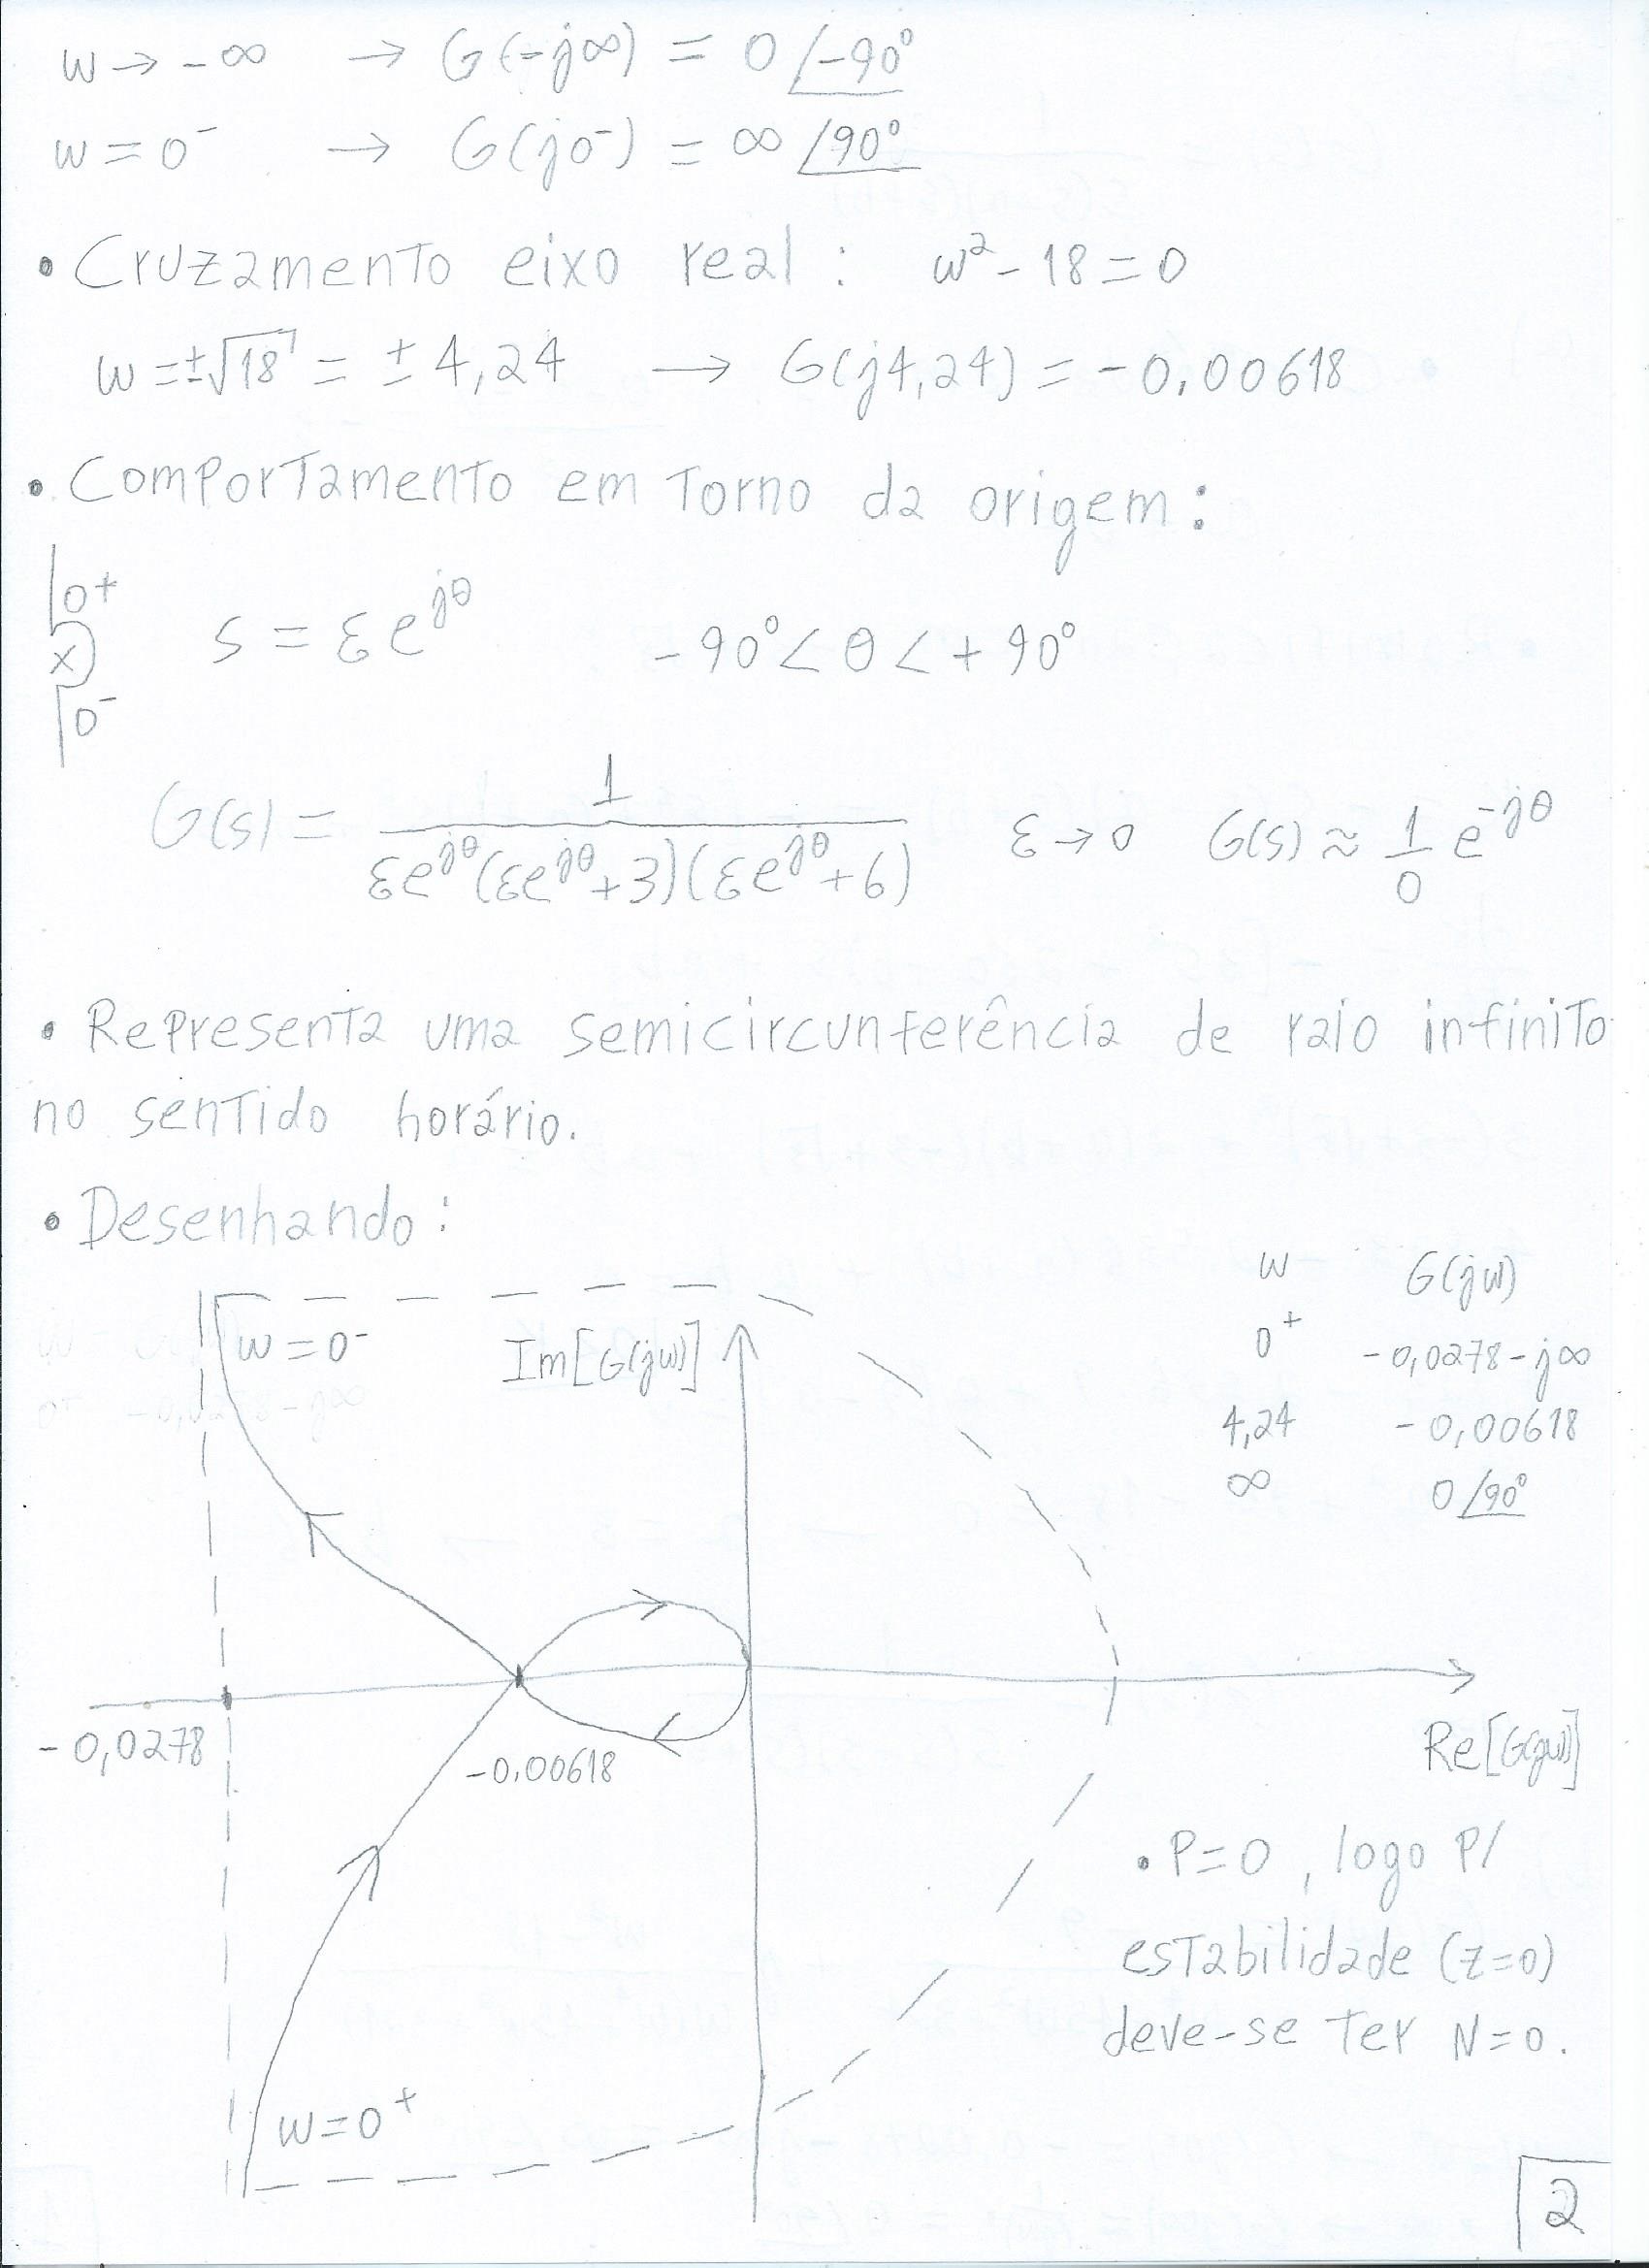 w → -∞ → G(-j∞) = 0 /-90°
w = 0⁻ → G(j0⁻) = ∞ /90°
• Cruzamento eixo real : w² - 18 = 0
w = ±√18 = ± 4,24 → G(j4,24) = -0,00618
• Comportamento em torno da origem :
0⁺
x
0⁻
s = εe^{jθ} -90° < θ < +90°
G(s) = 1 / εe^{jθ}(εe^{jθ}+3)(εe^{jθ}+6) ε → 0 G(s) ≈ 1/0 e^{-jθ}
• Representa uma semicircunferência de raio infinito
no sentido horário.
• Desenhando :
w G(jw)
0⁺ -0,0278 - j∞
4,24 -0,00618
∞ 0 /90°
w = 0⁻
Im[G(jw)]
-0,0278
-0,00618
Re[G(jw)]
w = 0⁺
• P=0 , logo p/
estabilidade (z=0)
deve-se ter N=0.
2